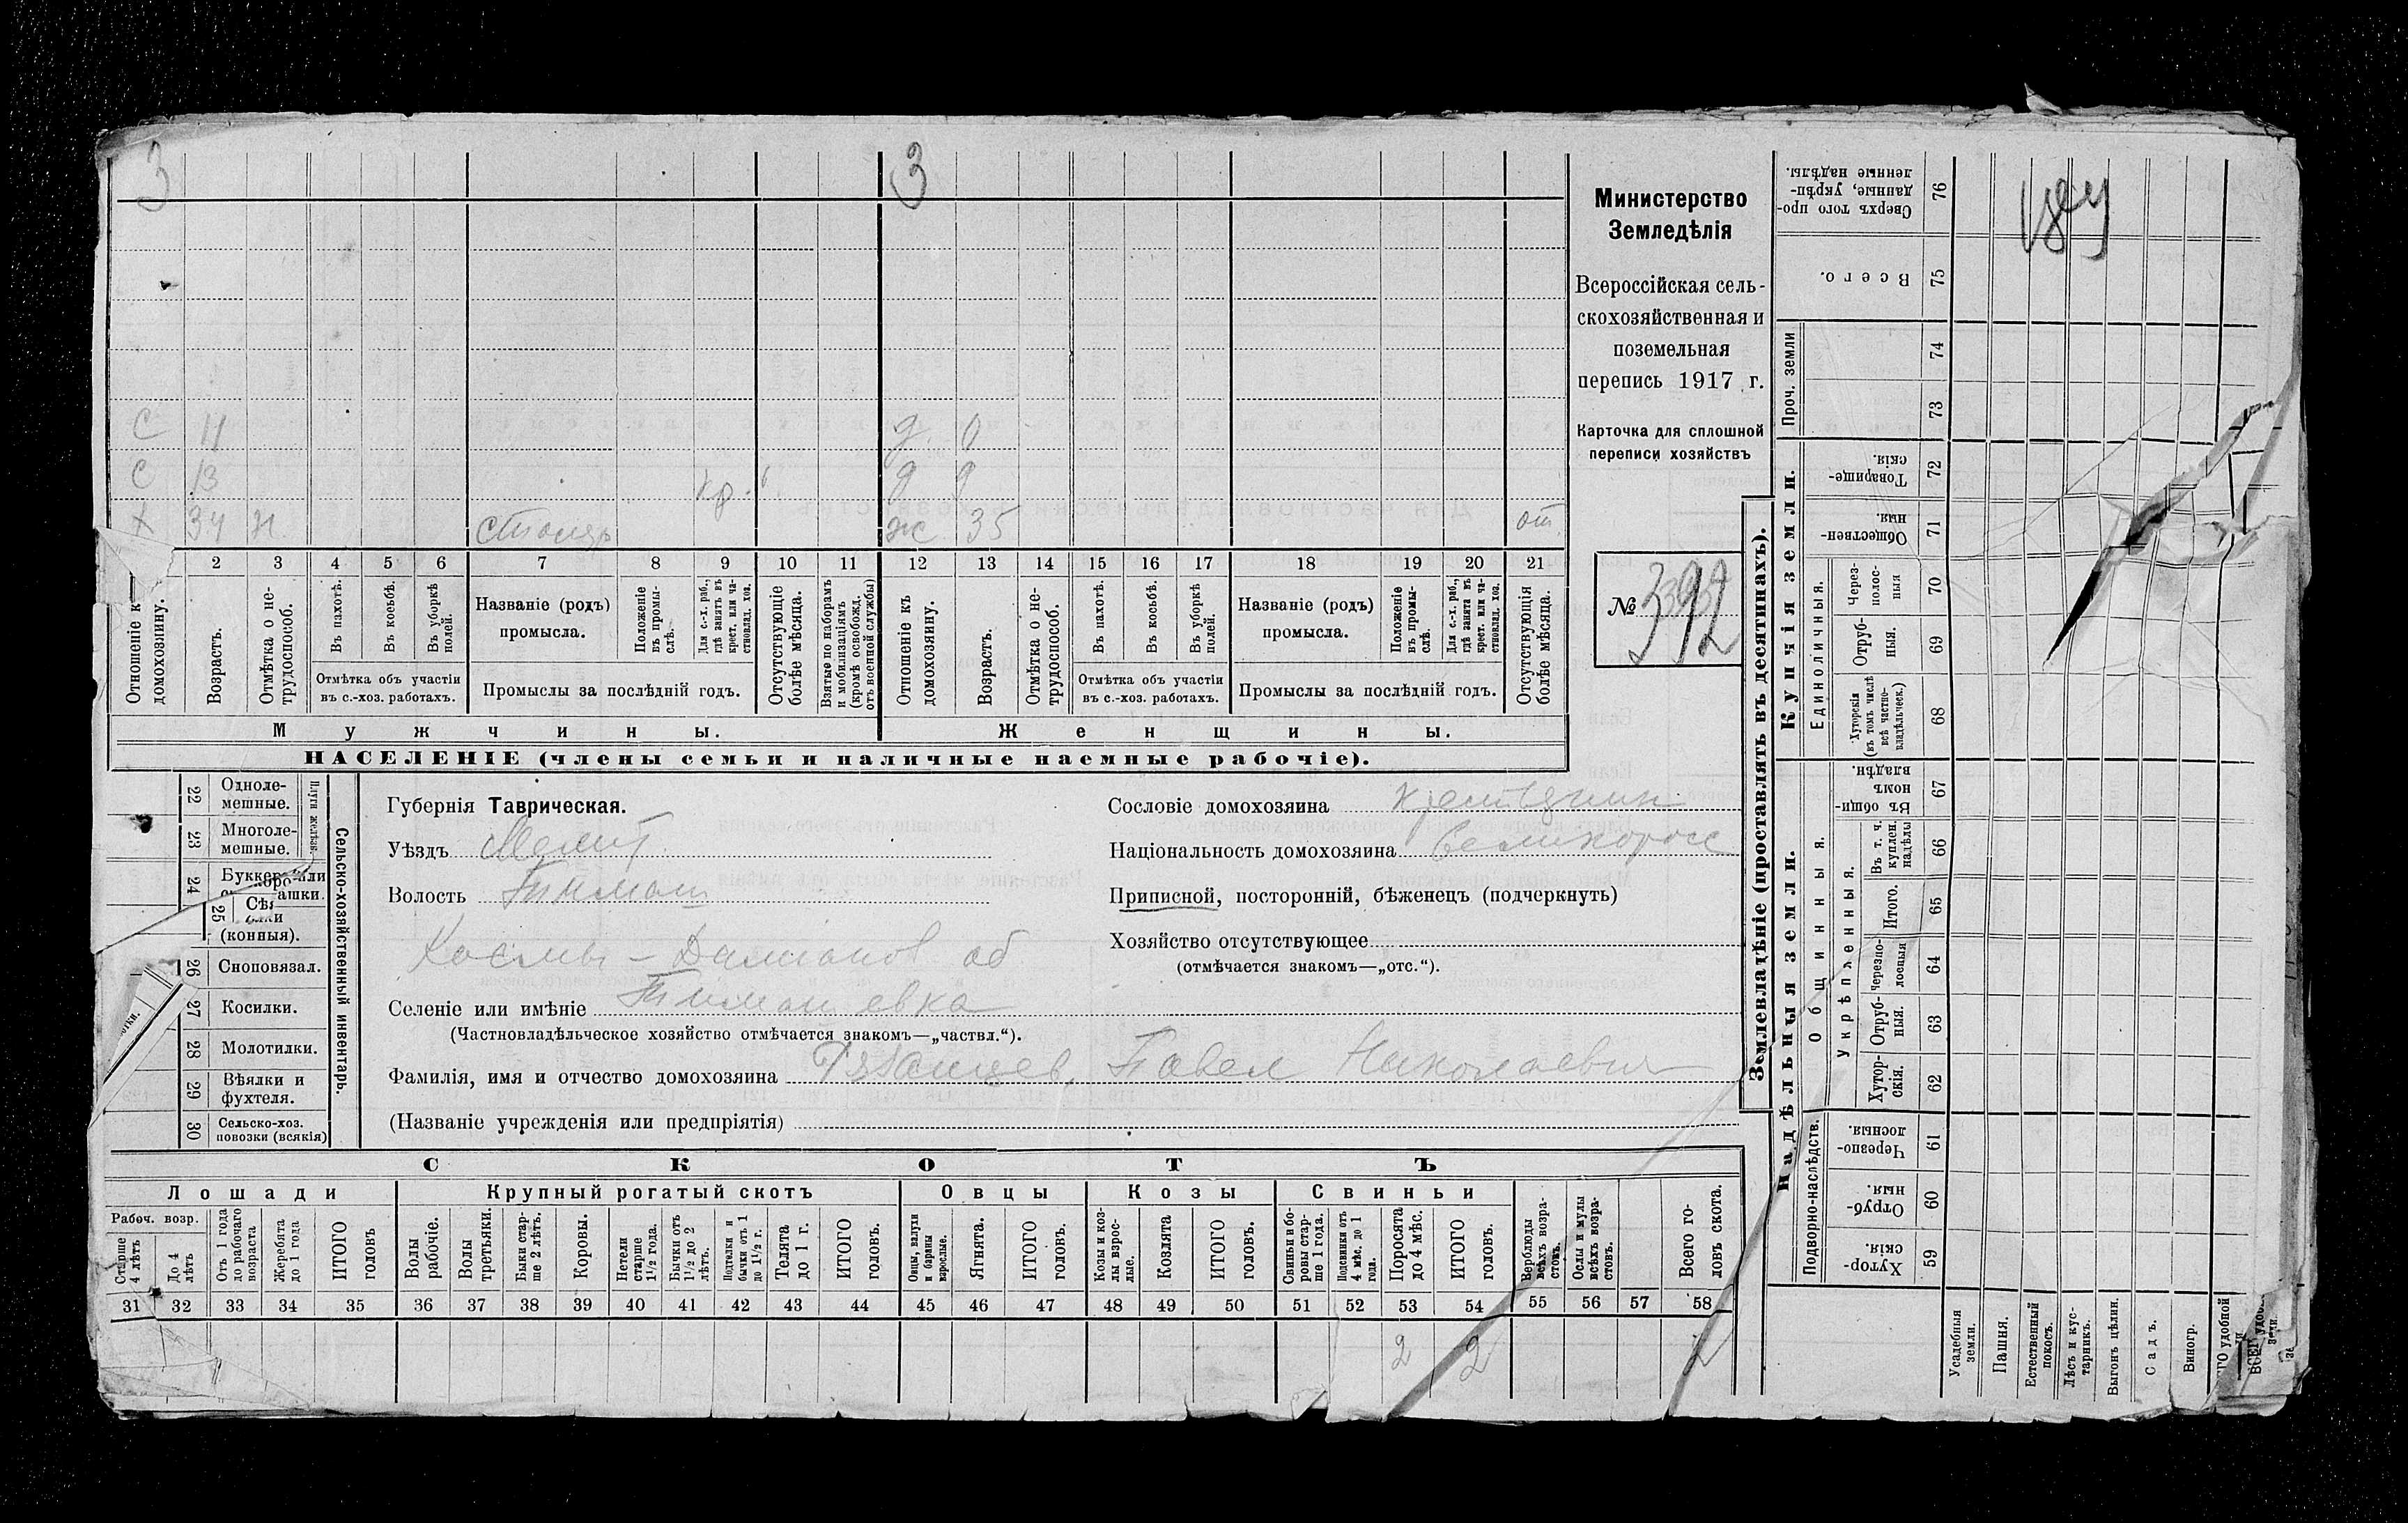 3 3
С 11 д. 0
С 13 кр. д 9
Х 34 н. столяр ж 35 от
2 3 4 5 6 7 8 9 10 11 12 13 14 15 16 17 18 19 20 21
Отношеніе к домохозяину.
Возрастъ.
Отмѣтка о не-трудоспособ.
Въ пахотѣ.
Въ косьбѣ.
Въ уборкѣ полей.
Отмѣтка объ участіи въ с.-хоз. работахъ.
Названіе (родъ) промысла.
Положеніе въ промы-слѣ.
Для с.-х. раб., гдѣ занятъ въ крест. или ча-стновлад. хоз.
Промыслы за послѣдній годъ.
Отсутствующіе болѣе мѣсяца.
Взятые по наборамъ и мобилизаціямъ (кромѣ освобожд. отъ военной службы)
Отношеніе къ домохозяину.
Возрастъ.
Отмѣтка о не-трудоспособ.
Въ пахотѣ.
Въ косьбѣ.
Въ уборкѣ полей.
Отмѣтка объ участіи въ с.-хоз. работахъ.
Названіе (родъ) промысла.
Положеніе въ промы-слѣ.
Для с.-х. раб., гдѣ занята въ крест. или ча-стновлад. хоз.
Промыслы за послѣдній годъ.
Отсутствующія болѣе мѣсяца.
Мужчины. Женщины.
НАСЕЛЕНІЕ (члены семьи и наличные наемные рабочіе).
Министерство
Земледѣлія
Всероссійская сель-
скохозяйственная и
поземельная
перепись 1917 г.
Карточка для сплошной
переписи хозяйствъ
№ 392
Сельско-хозяйственный инвентарь.
Плуги желѣзн.
22 Одноле-мешные.
23 Многоле-мешные.
24 Буккера или
ашки.
25
(конныя).
26 Сноповязал.
27 Косилки.
28 Молотилки.
29 Вѣялки и фухтеля.
30 Сельско-хоз. повозки (всякія)
Губернія Таврическая.
Уѣздъ Мелит
Волость Тимаш
Космы-Дамианов об
Селеніе или имѣніе Тимашевка
(Частновладѣльческое хозяйство отмѣчается знакомъ—„частвл.“).
Фамилія, имя и отчество домохозяина Рязанцев, Павел Николаевич
(Названіе учрежденія или предпріятія)
Сословіе домохозяина крестьянин
Національность домохозяина Великоросс
Приписной, посторонній, бѣженецъ (подчеркнуть)
Хозяйство отсутствующее
(отмѣчается знакомъ—„отс.“).
СКОТЪ
Лошади
Рабоч. возр.
Старше 4 лѣтъ
До 4 лѣтъ
Отъ 1 года до рабочаго возраста
Жеребята до 1 года
ИТОГО головъ
Крупный рогатый скотъ
Волы рабочіе.
Волы третьяки.
Быки стар-ше 2 лѣтъ.
Коровы.
Нетели старше 1½ года.
Бычки отъ 1½ до 2 лѣтъ.
Подтелки и бычки отъ 1 до 1½ г.
Телята до 1 г.
ИТОГО головъ.
Овцы
Овцы, валухи и бараны взрослые.
Ягнята.
ИТОГО головъ.
Козы
Козы и коз-лы взрос-лые.
Козлята
ИТОГО головъ.
Свиньи
Свиньи и бо-ровы стар-ше 1 года.
Подсвинки отъ 4 мѣс. до 1 года.
Поросята до 4 мѣс.
ИТОГО головъ.
Верблюды всѣхъ возра-стовъ.
Ослы и мулы всѣхъ возра-стовъ.
Всего го-ловъ скота.
31 32 33 34 35 36 37 38 39 40 41 42 43 44 45 46 47 48 49 50 51 52 53 54 55 56 57 58
2 2 2
Землевладѣніе (проставлять въ десятинахъ).
Сверхъ того про-данные, укрѣп-ленные надѣлы. 76
Всего. 75
Проч. земли
74
73
Купчія земли.
Товарище-скія. 72
Обществен-ныя. 71
Единоличныя.
Через-полос-ныя 70
Отруб-ныя. 69
Хуторскія (въ томъ числѣ всѣ частно-владѣльческ.) 68
Надѣльныя земли.
Общинныя.
Въ общин-номъ владѣн. 67
Укрѣпленныя.
Въ т. ч. куплен. надѣлы 66
Итого. 65
Черезпо-лосныя 64
Отруб-ныя. 63
Хутор-скія. 62
Подворно-наслѣдств.
Черезпо-лосныя. 61
Отруб-ныя. 60
Хутор-скія. 59
Усадебныя земли.
Пашня.
Естественный покосъ.
Лѣсъ и кус-тарникъ.
Выгонъ цѣлин.
Садъ.
Виногр.
удобной